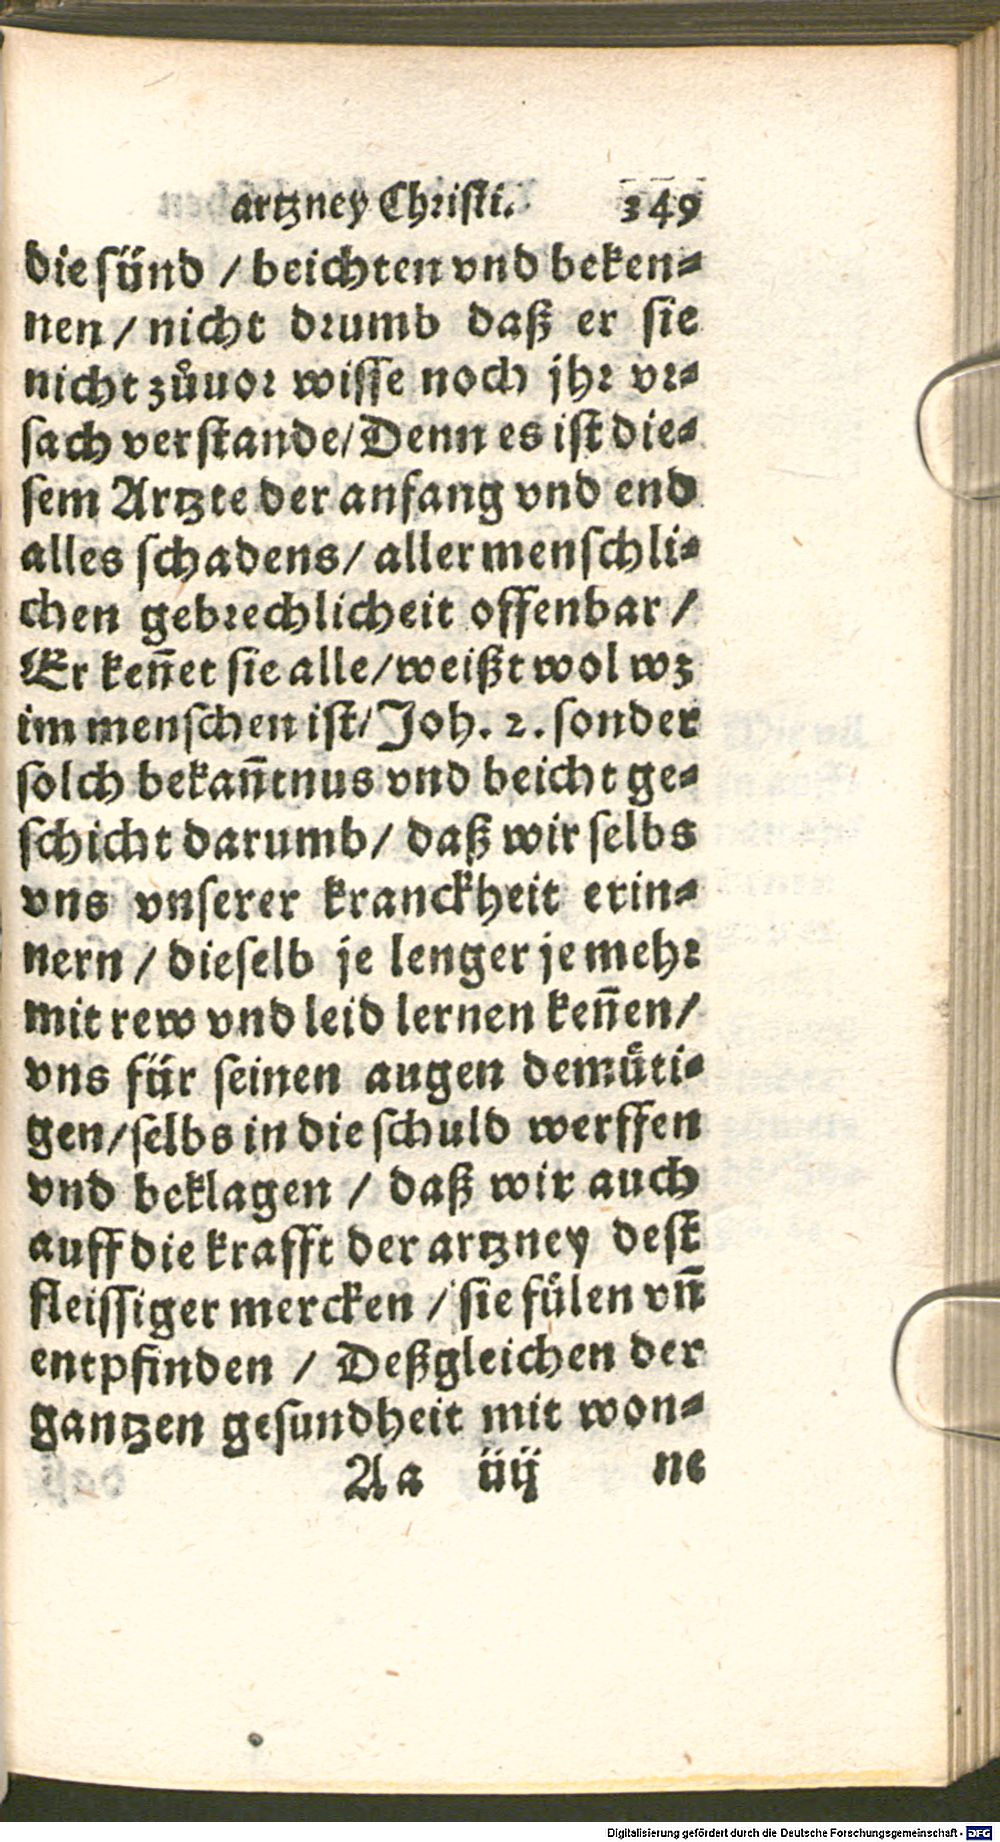 artzney Christi. 349
die sünd / beichten vnd beken⸗
nen / nicht drumb daß er sie
nicht zůuor wisse noch jhr vr⸗
sach verstande / Denn es ist die⸗
sem Artzte der anfang vnd end
alles schadens / aller menschli⸗
chen gebrechlicheit offenbar /
Er keñet sie alle / weißt wol wz
im menschen ist / Joh. 2. sonder
solch bekañtnus vnd beicht ge⸗
schicht darumb / daß wir selbs
vns vnserer kranckheit erin⸗
nern / dieselb je lenger je mehr
mit rew vnd leid lernen keñen /
vns für seinen augen demüti⸗
gen / selbs in die schuld werffen
vnd beklagen / daß wir auch
auff die krafft der artzney dest
fleissiger mercken / sie fülen vñ
entpfinden / Deßgleichen der
gantzen gesundheit mit won⸗
Aa iiij ne
Digitalisierung gefördert durch die Deutsche Forschungsgemeinschaft - DFG